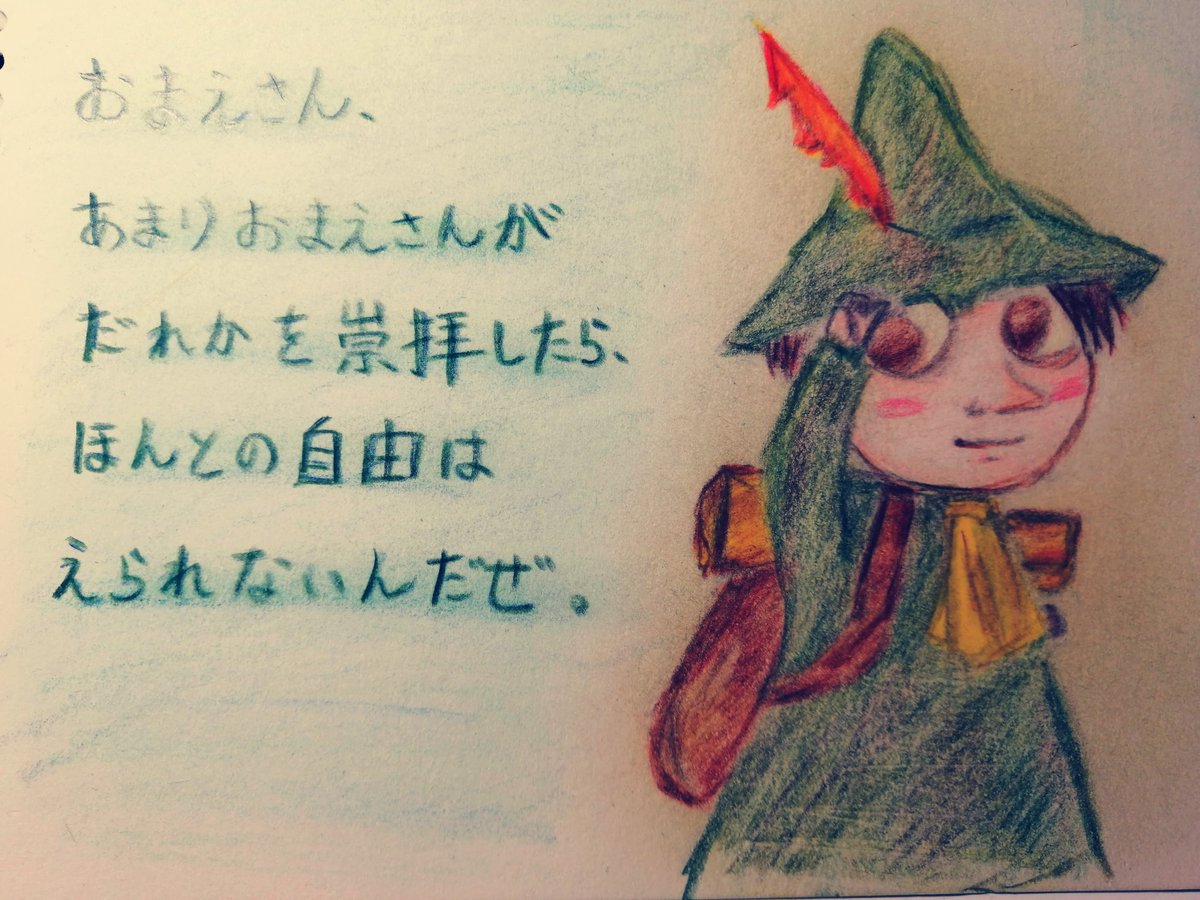 おまえさん、
あまりおまえさんが
だれかを崇拝したら、
ほんとの自由は
えられないんだぜ。